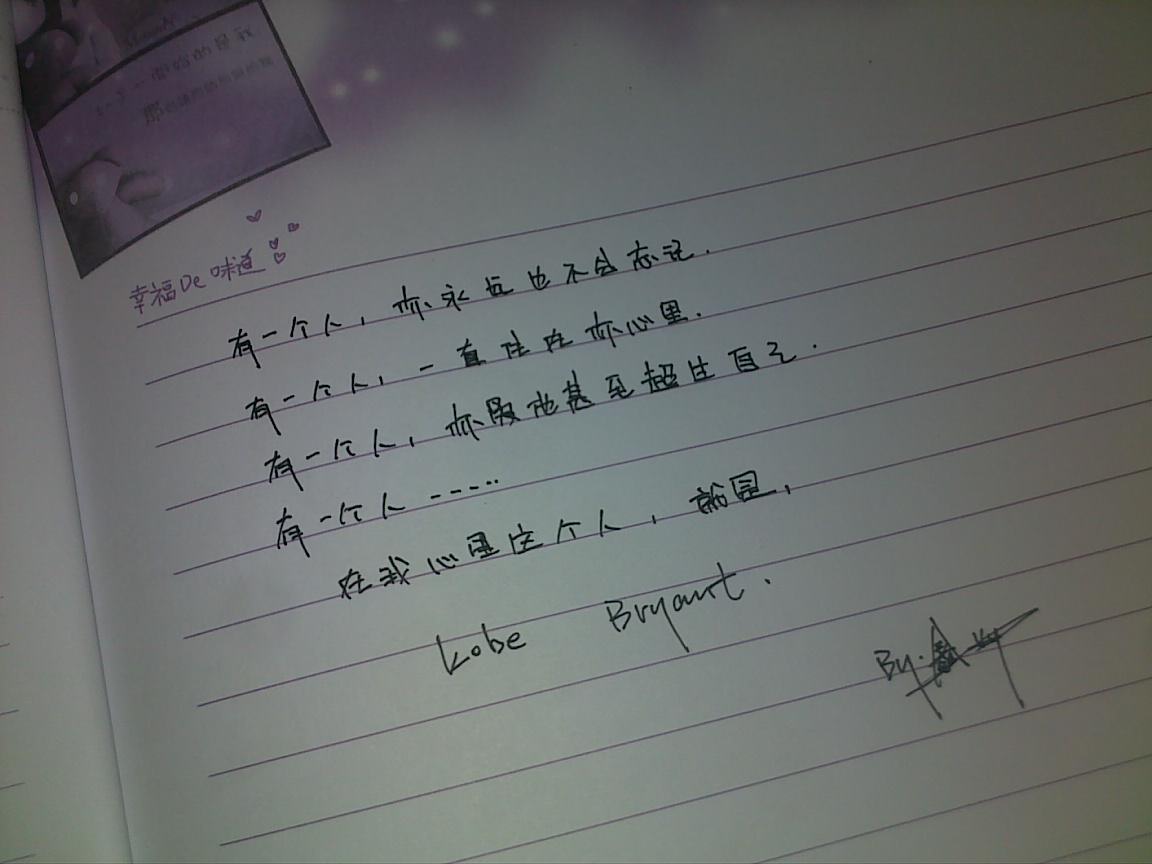 一開始的是我
幸福De味道
有一个人，亦永远也不会忘记.
有一个人，一直住在亦心里.
有一个人，亦服他甚至超过自己.
有一个人-----
在我心里这个人，就是，
Kobe Bryant.
By.